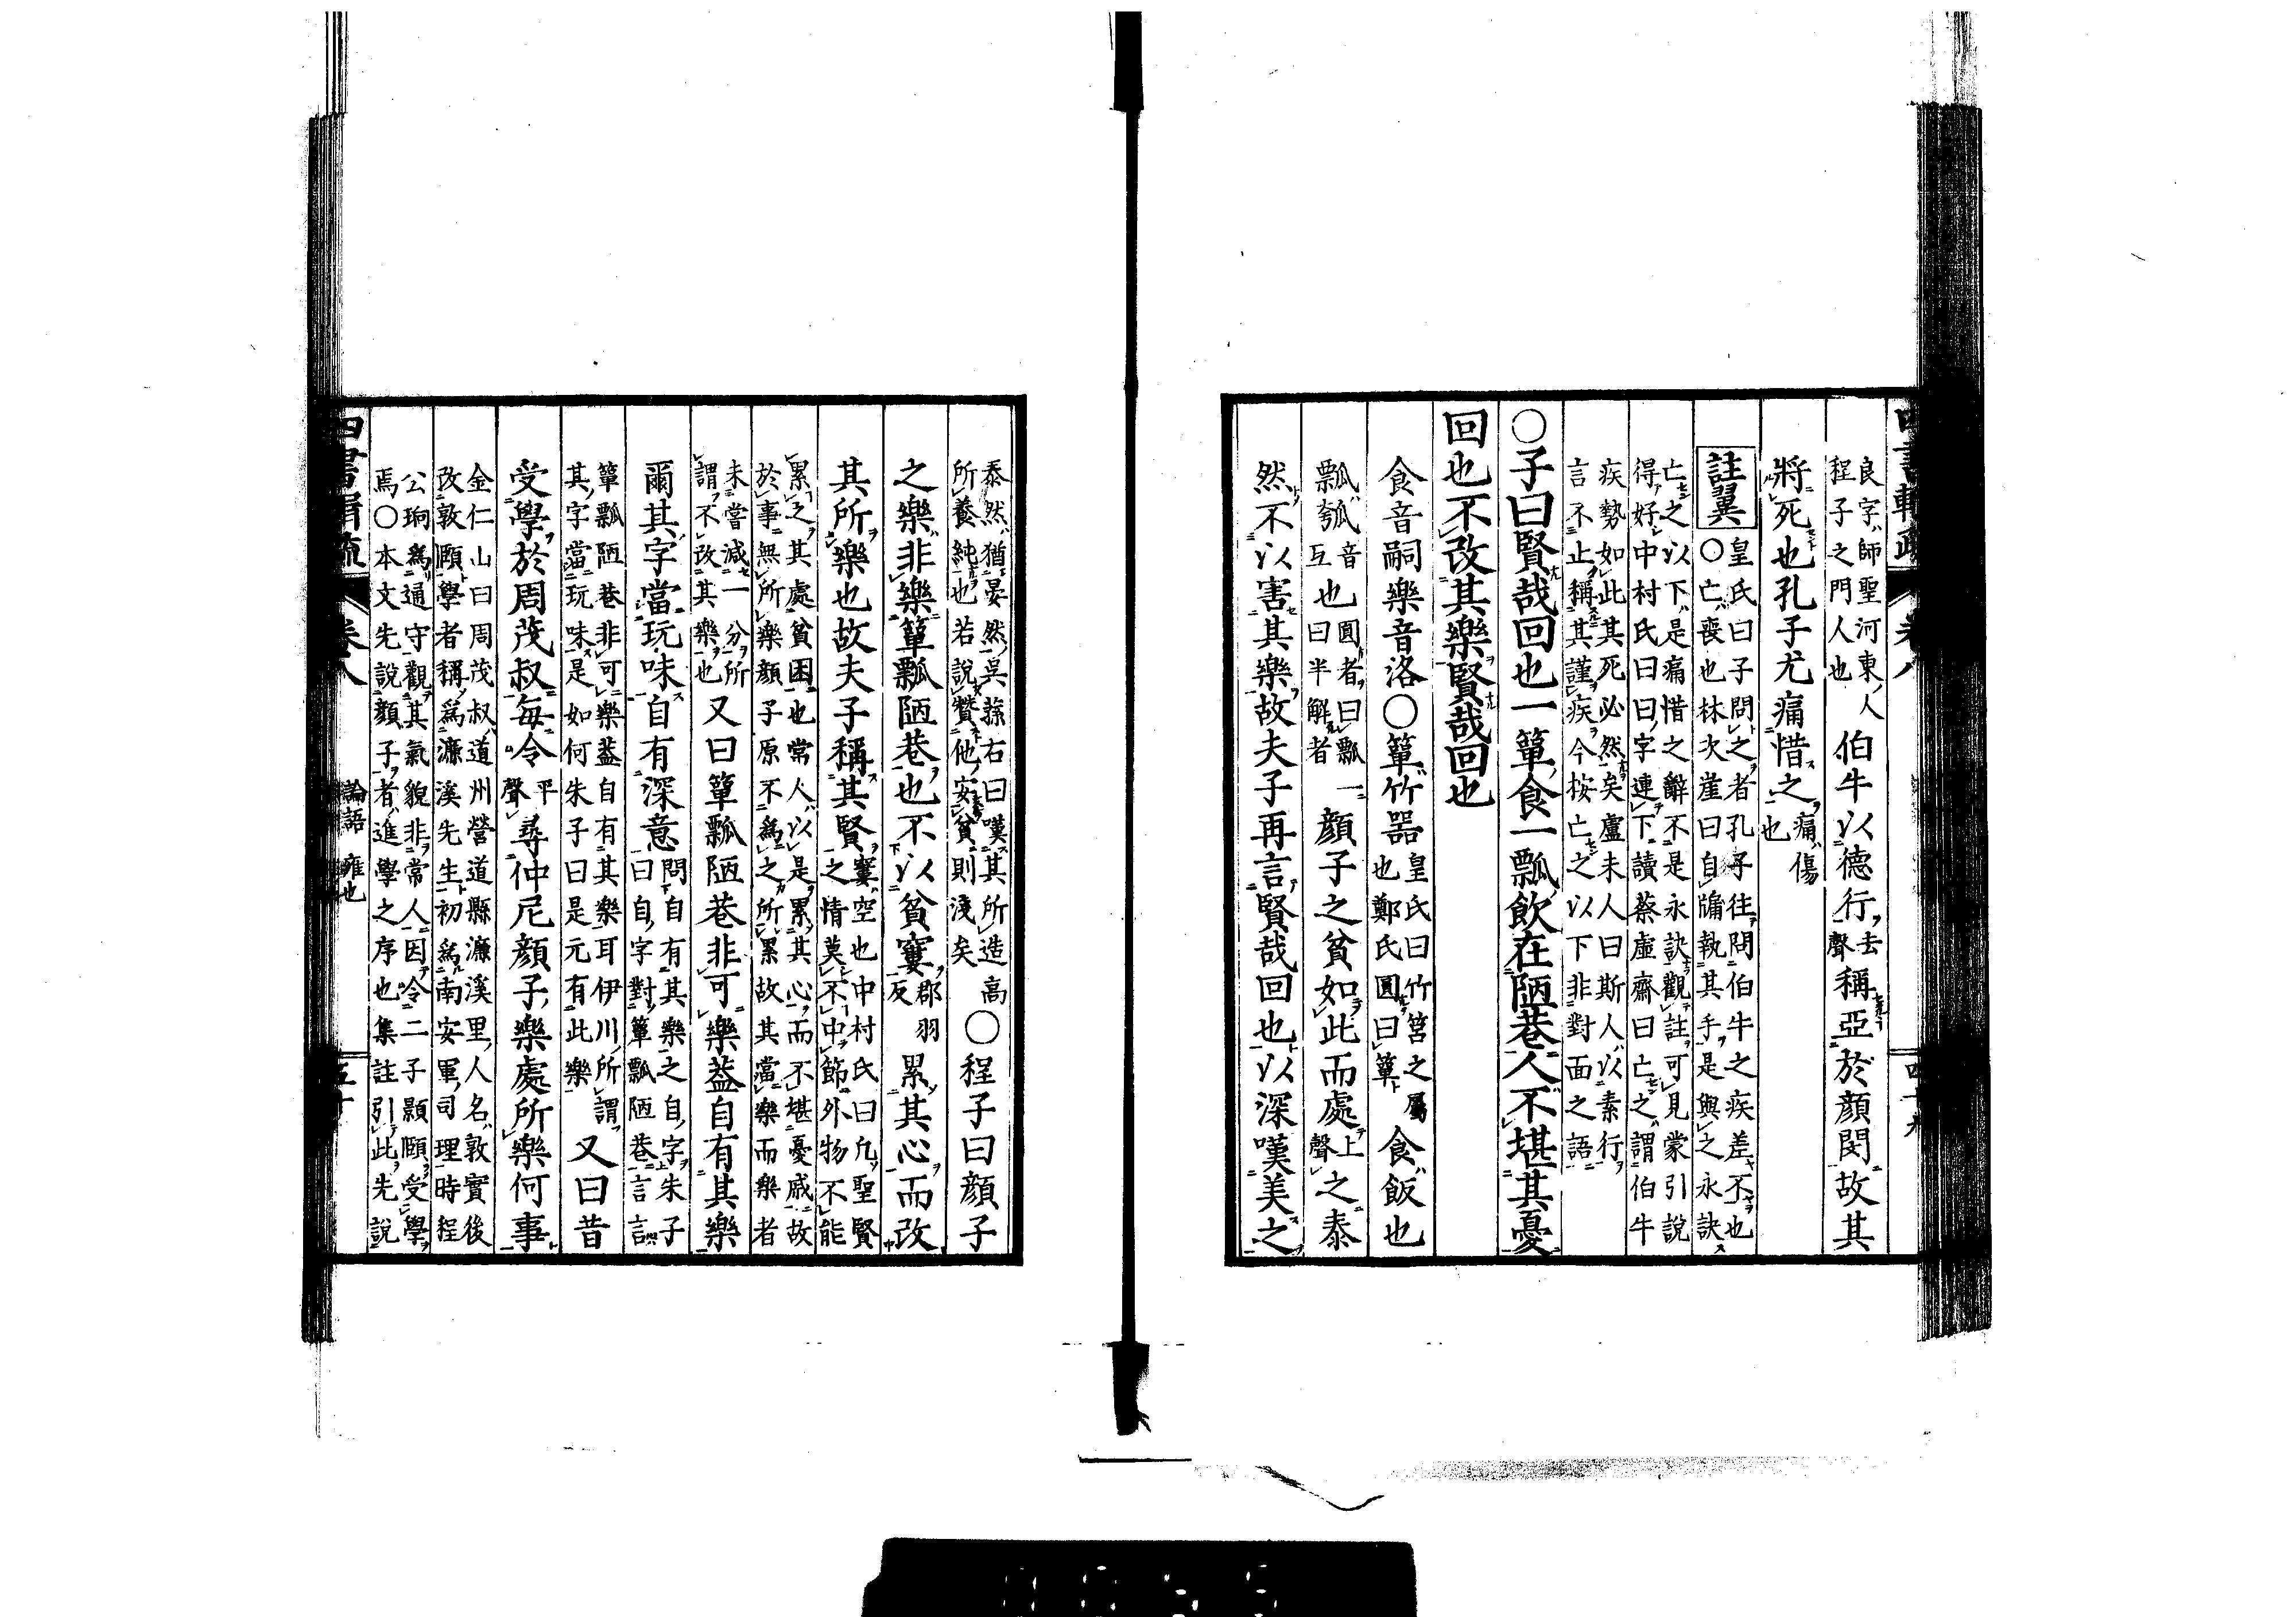 四書輯疏 卷八 四十九
良字師聖河東人程子之門人也 伯牛以德行去聲稱亞於顏閔故其
將死也孔子尤痛惜之痛傷也
註翼 ○皇氏曰子問之者孔子往問伯牛之疾差不也亡喪也林次崖曰自牖執其手是與之永訣
亡之以下是痛惜之辭不是永訣觀註可見蒙引說得好中村氏曰曰字連下讀蔡虛齋曰亡之謂伯牛
疾勢如此其死必然矣盧未人曰斯人以素行言不止稱其謹疾今按亡之以下非對面之語
○子曰賢哉回也一簞食一瓢飲在陋巷人不堪其憂
回也不改其樂賢哉回也
食音嗣樂音洛○簞竹器皇氏曰竹筥之屬也鄭氏圓曰簞 食飯也
瓢瓠音互也圓者曰瓢一曰半解者 顏子之貧如此而處上聲之泰
然不以害其樂故夫子再言賢哉回也以深嘆美之
泰然猶晏然吳蓀右曰嘆其所造高所養純也若說贊他安貧則淺矣 ○程子曰顏子
之樂非樂簞瓢陋巷也不以貧窶郡羽反累其心而改
其所樂也故夫子稱其賢窶空也中村氏曰凡聖賢之情莫不中節外物不能
累之其處貧困也常人以是累其心而不堪憂戚故於事無所樂顏子原不為之所累故其當樂而樂者
未嘗減一分所謂不改其樂也 又曰簞瓢陋巷非可樂蓋自有其樂
爾其字當玩味自有深意問自有其樂之自字朱子曰自字對簞瓢陋巷言言
簞瓢陋巷非可樂蓋自有其樂耳伊川所謂其字當玩味是如何朱子曰是元有此樂 又曰昔
受學於周茂叔每令平聲尋仲尼顏子樂處所樂何事
金仁山曰周茂叔道州營道縣濂溪里人名敦實後改敦頤學者稱為濂溪先生初為南安軍司理時程
公珦為通守觀其氣貌非常人因令二子顥頤受學焉○本文先說顏子者進學之序也集註引此先說
四書輯疏 卷八 論語 雍也 五十